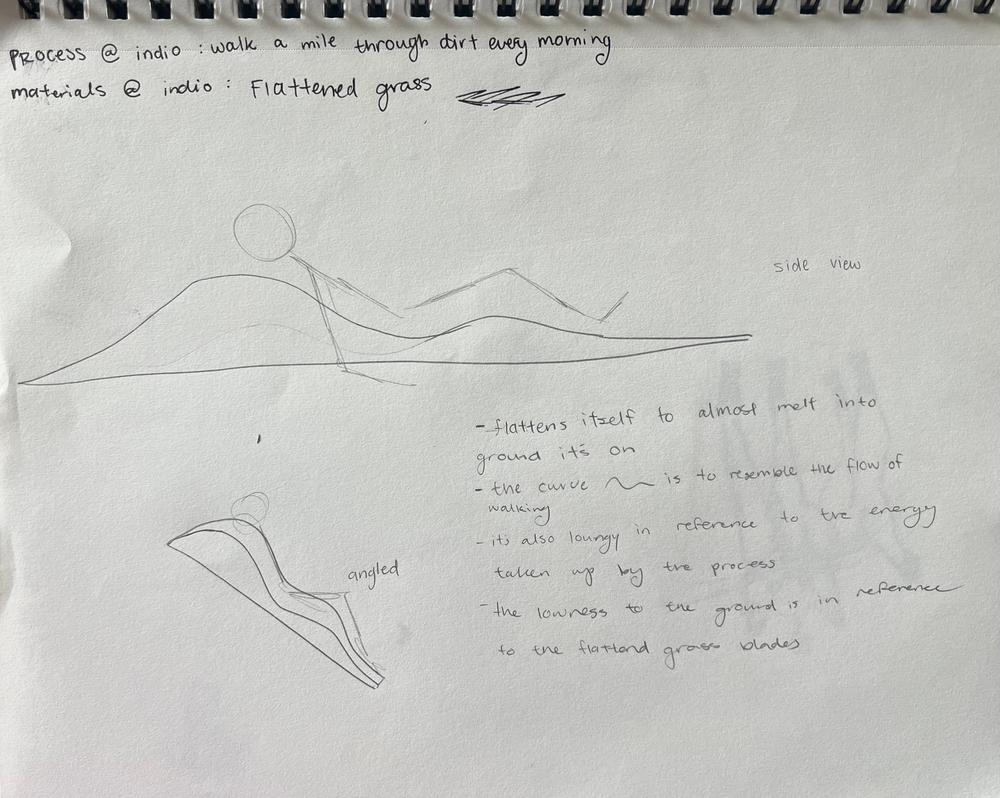 PROCESS @ indio : walk a mile through dirt every morning
materials @ indio : Flattened grass
side view
- flattens itself to almost melt into
ground it's on
- the curve is to resemble the flow of
walking
- it's also loungy in reference to the energy
taken up by the process
- the lowness to the ground is in reference
to the flattend grass blades
angled